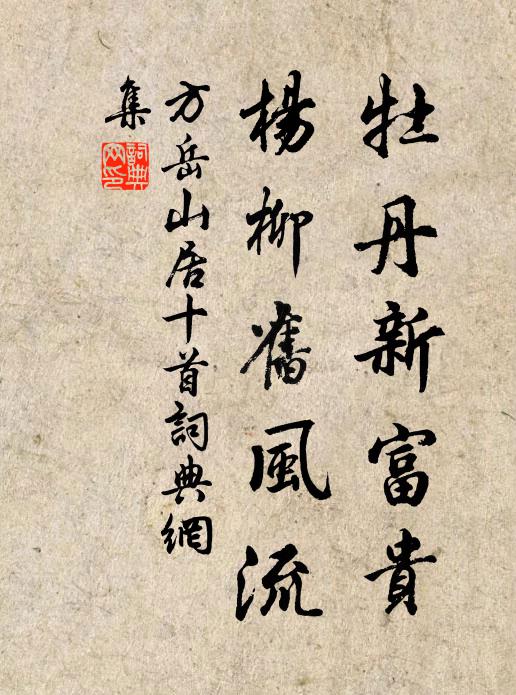 牡丹新富貴
楊柳舊風流
方岳山居十首詞典網
集
詞典網印